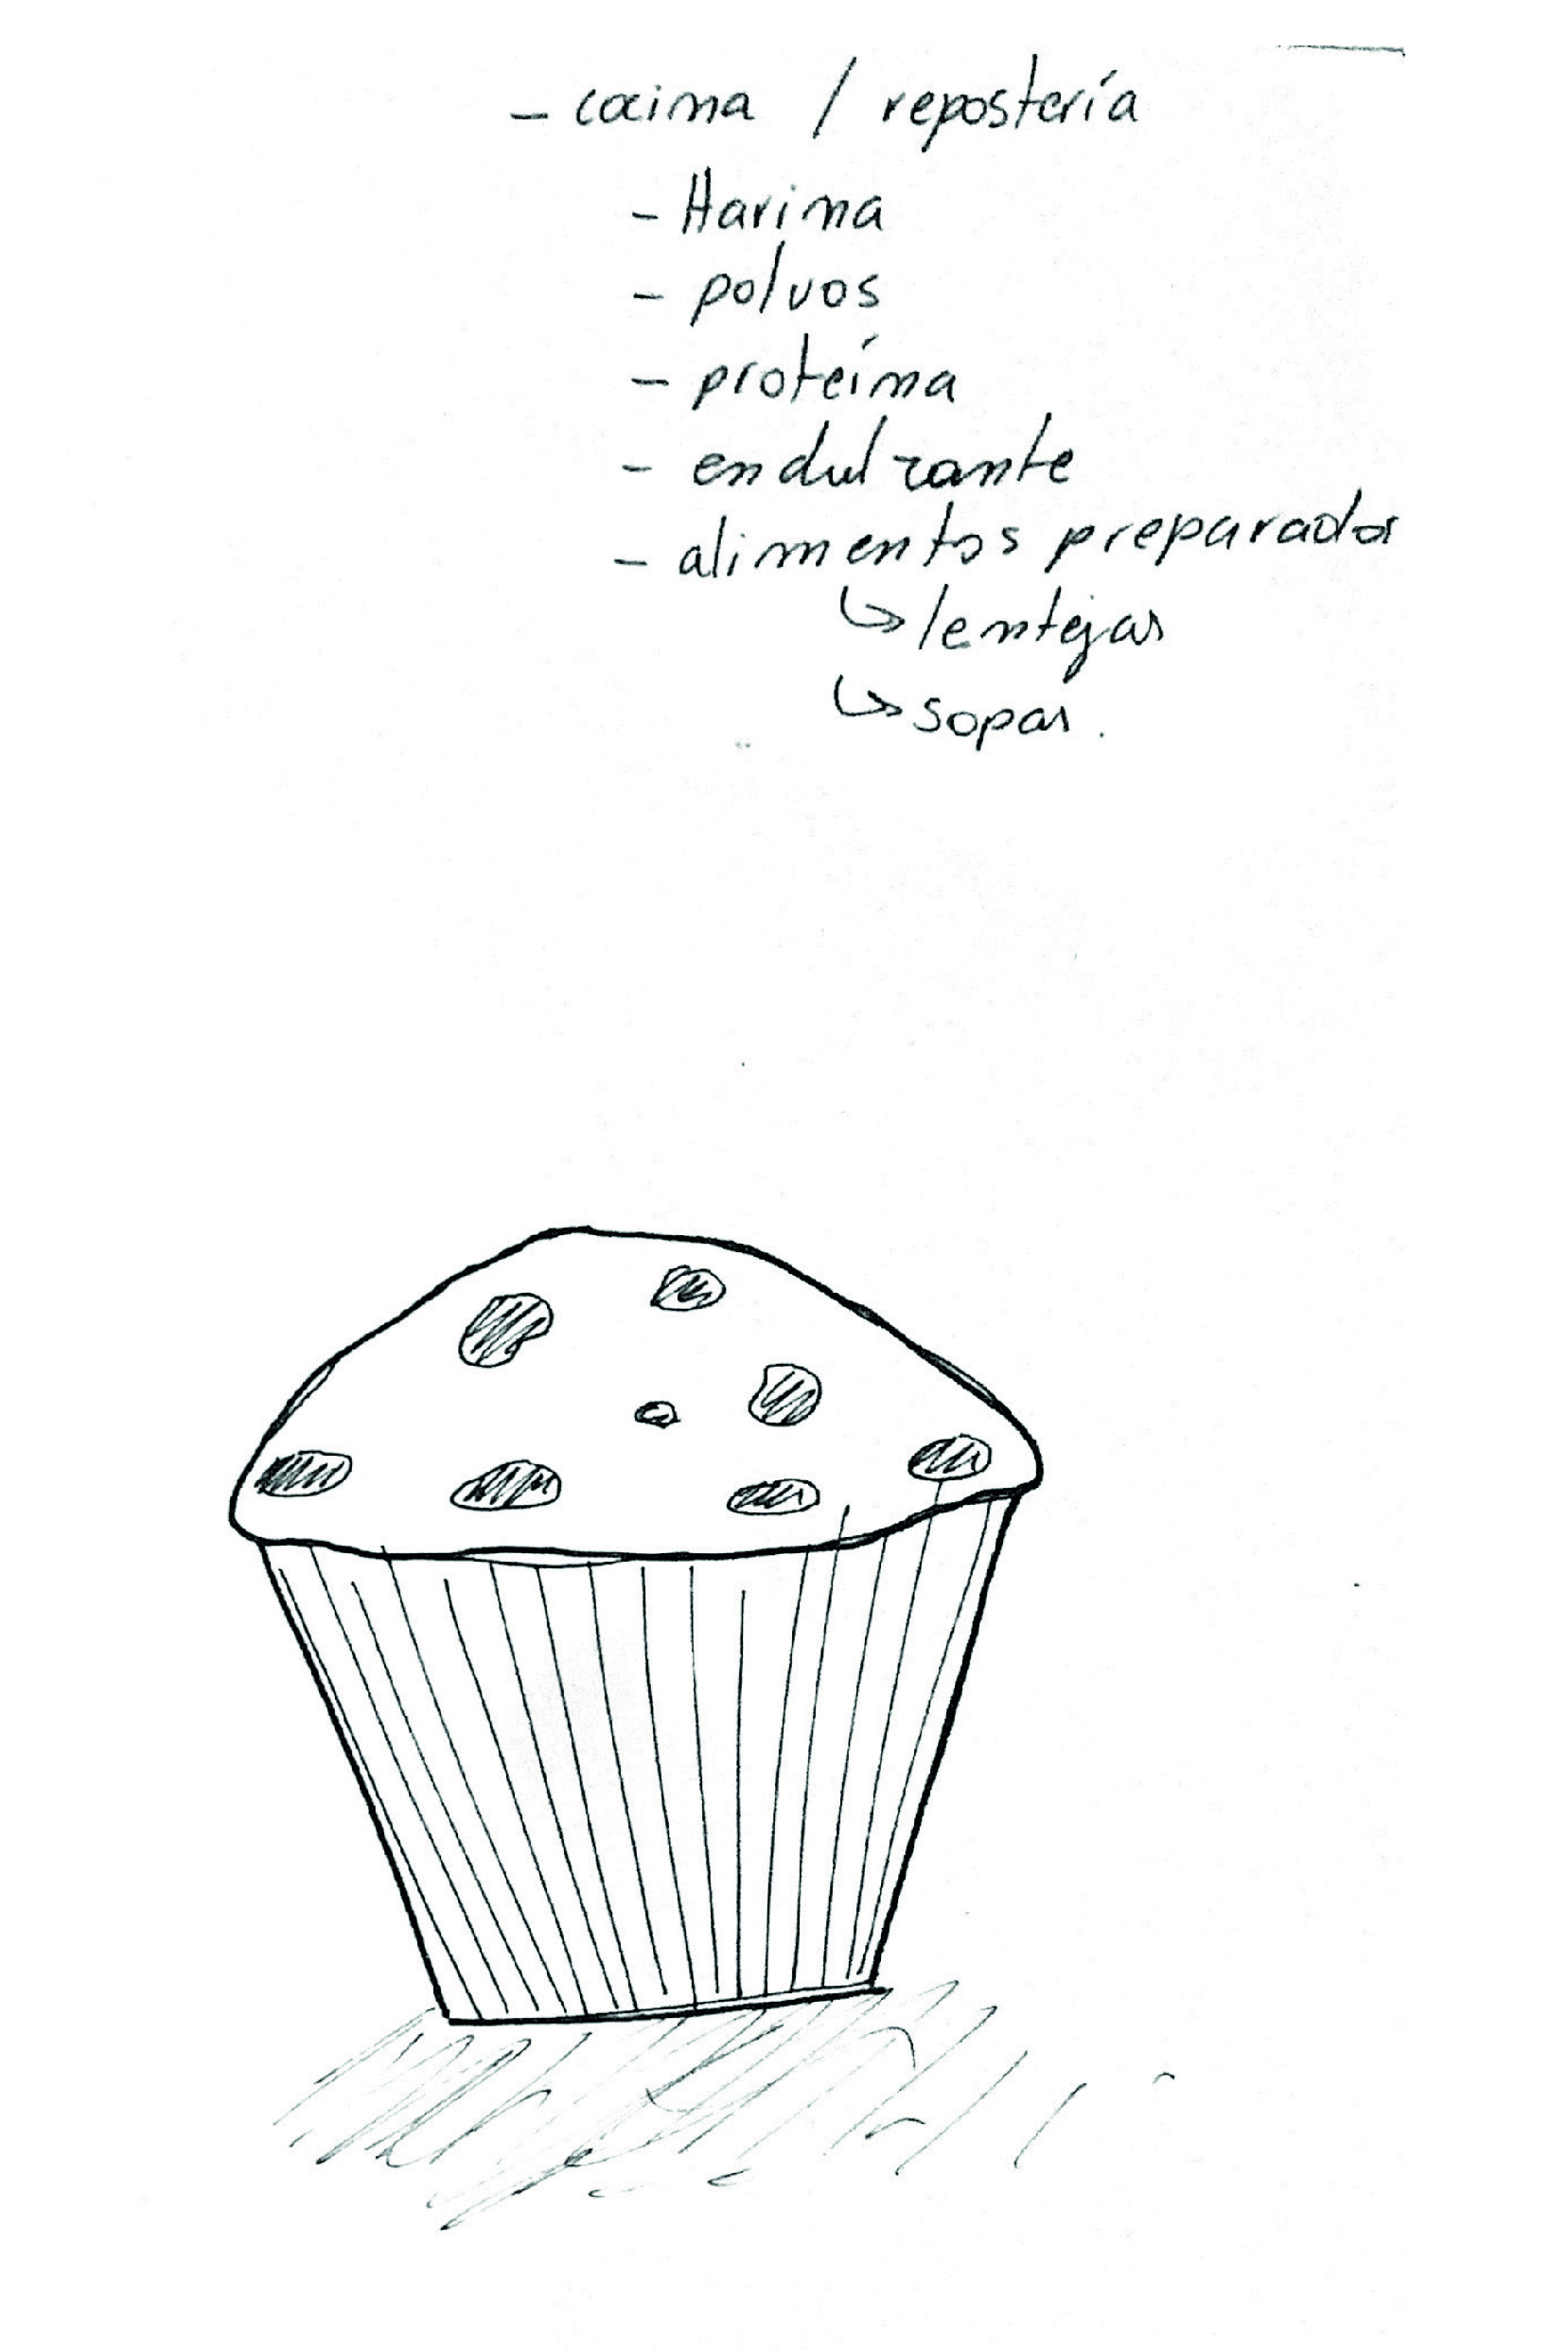 - cocina / repostería
- Harina
- polvos
- proteína
- endulzante
- alimentos preparados
↳ lentejas
↳ sopas.